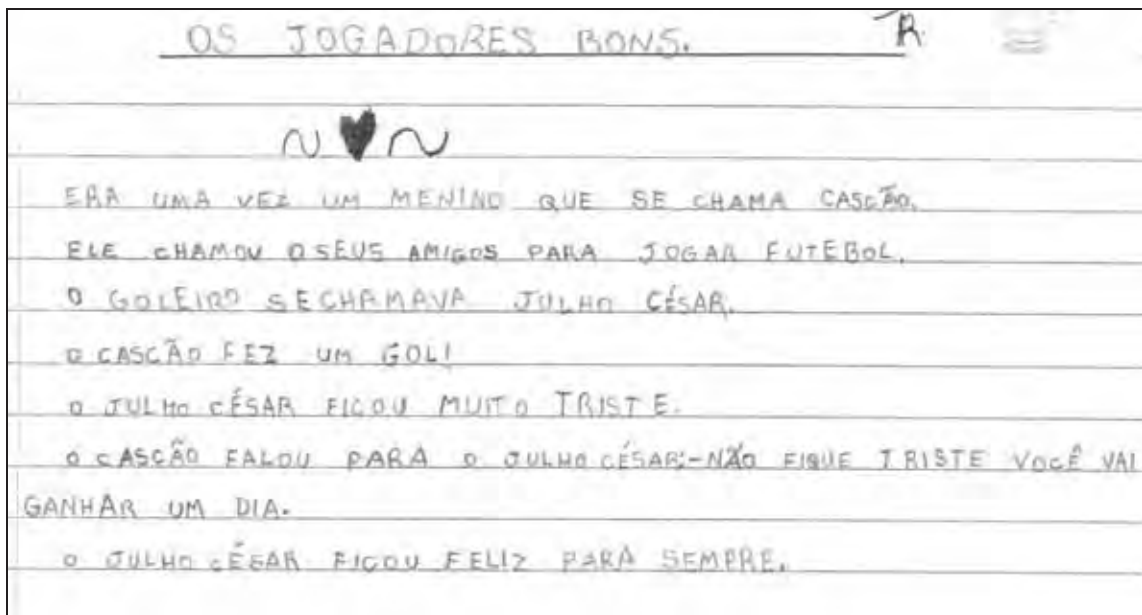 OS JOGADORES BONS. R.
ERA UMA VEZ UM MENINO QUE SE CHAMA CASCÃO.
ELE CHAMOU OSEUS AMIGOS PARA JOGAR FUTEBOL.
O GOLEIRO SECHAMAVA JULHO CÉSAR.
O CASCÃO FEZ UM GOL!
O JULHO CÉSAR FICOU MUITO TRISTE.
O CASCÃO FALOU PARA O JULHO CÉSAR:-NÃO FIQUE TRISTE VOCÊ VAI
GANHAR UM DIA.
O JULHO CÉSAR FICOU FELIZ PARA SEMPRE.